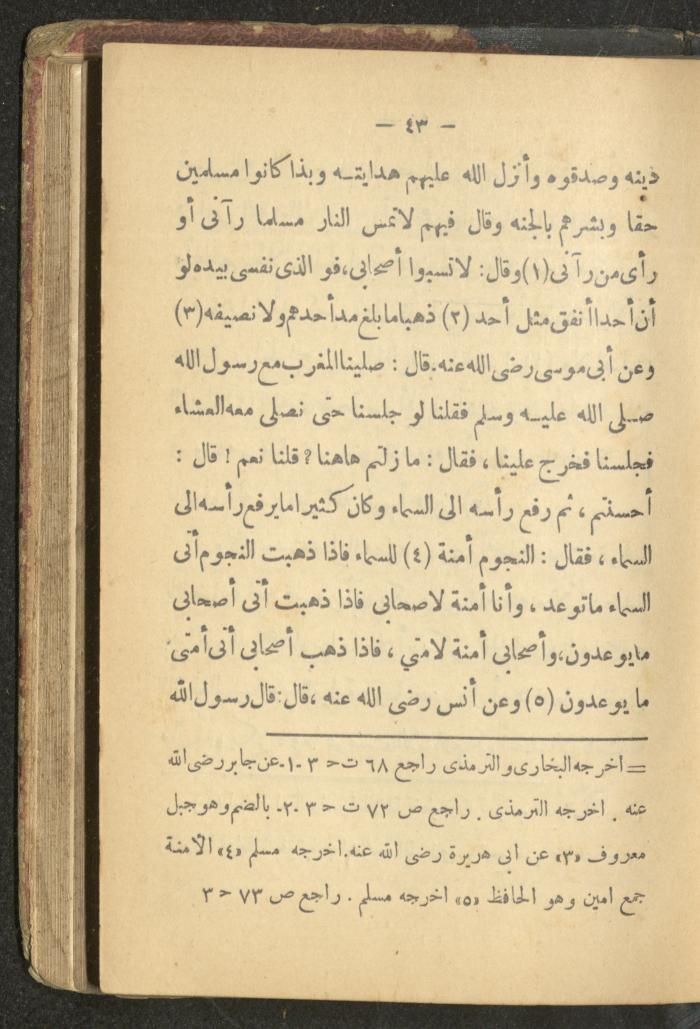 — ٤٣ —
دينه وصدقوه وأنزل الله عليهم هدايتـه وبذا كانوا مسلمين
حقا وبشرهم بالجنه وقال فيهم لاتمس النار مسلما رآنى أو
رأى من رآنى (١) وقال : لاتسبوا أصحابى ، فو الذى نفسى بيده لو
أن أحدا أنفق مثل أحد (٢) ذهبا ما بلغ مد أحدهم ولا نصيفه (٣)
وعن أبى موسى رضى الله عنه . قال : صلينا المغرب مع رسول الله
صـلى الله عليـه وسلم فقلنا لو جلسنا حتى نصلى معه العشاء
فجلسنا فخرج علينا ، فقال : ما زلتم هاهنا ? قلنا نعم ! قال :
أحسنتم ، ثم رفع رأسه الى السماء وكان كثيرا ما يرفع رأسه الى
السماء ، فقال : النجوم أمنة (٤) للسماء فاذا ذهبت النجوم أتى
السماء ماتوعد ، وأنا أمنة لاصحابى فاذا ذهبت أتى أصحابى
مايوعدون ، وأصحابى أمنة لامتي ، فاذا ذهب أصحابى أتى أمتى
ما يوعدون (٥) وعن أنس رضى الله عنه ، قال : قال رسول الله
= اخرجه البخارى والترمذى راجع ٦٨ ت ح ٣ -١- عن جابر رضى الله
عنه . اخرجه الترمذى . راجع ص ٧٢ ت ح ٣ -٢- بالضم وهو جبل
معروف «٣» عن ابى هريرة رضى الله عنه . اخرجه مسلم «٤» الامنة
جمع امين وهو الحافظ «٥» اخرجه مسلم . راجع ص ٧٣ ح ٣